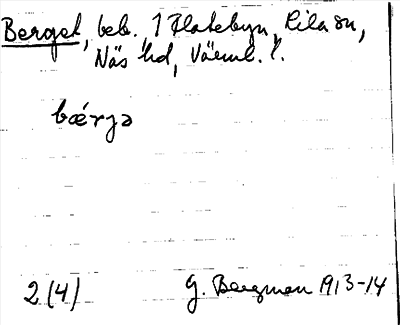 Berget, beb. 1 Flatebyn, Eila sn,
Näs hd, Värml. l.
bærjə
2 (4) G. Bergman 1913-14